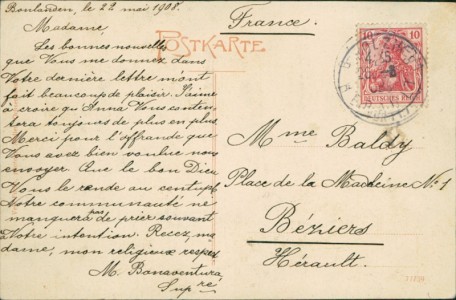 Bonlanden, le 22 mai 1908.
Madame,
Les bonnes nouvelles
que Vous me donnez dans
Votre dernière lettre m'ont
fait beaucoup de plaisir. J'aime
à croire qu'Anna Vous conten-
tera toujours de plus en plus.
Merci pour l'offrande que
Vous avez bien voulue nous
envoyer. Que le bon Dieu
Vous le rende au centuple.
Notre communauté ne
manquera pas de prier souvent
à Votre intention. Recez, ma-
dame, mon religieux respect
M. Bonaventura,
Supre
POSTKARTE
France.
10 10
DEUTSCHES REICH
Mme Baldy
Place de la Madeleine No 1
Béziers
Hérault.